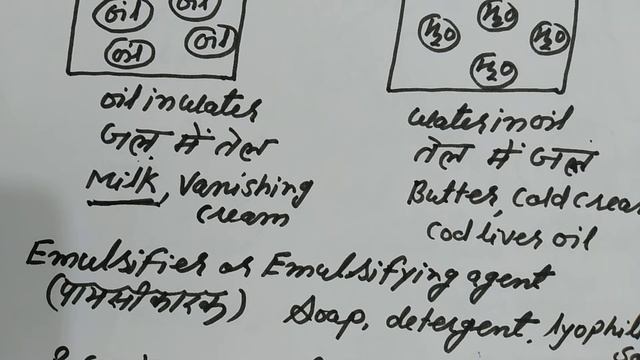 oil oil
oil oil
H₂O
H₂O H₂O
H₂O
oil in water
water in oil
जल में तेल
तेल में जल
Milk, Vanishing
cream
Butter, Cold cream
Cod liver oil
Emulsifier or Emulsifying agent
(पायसीकारक)
Soap, detergent, lyophil